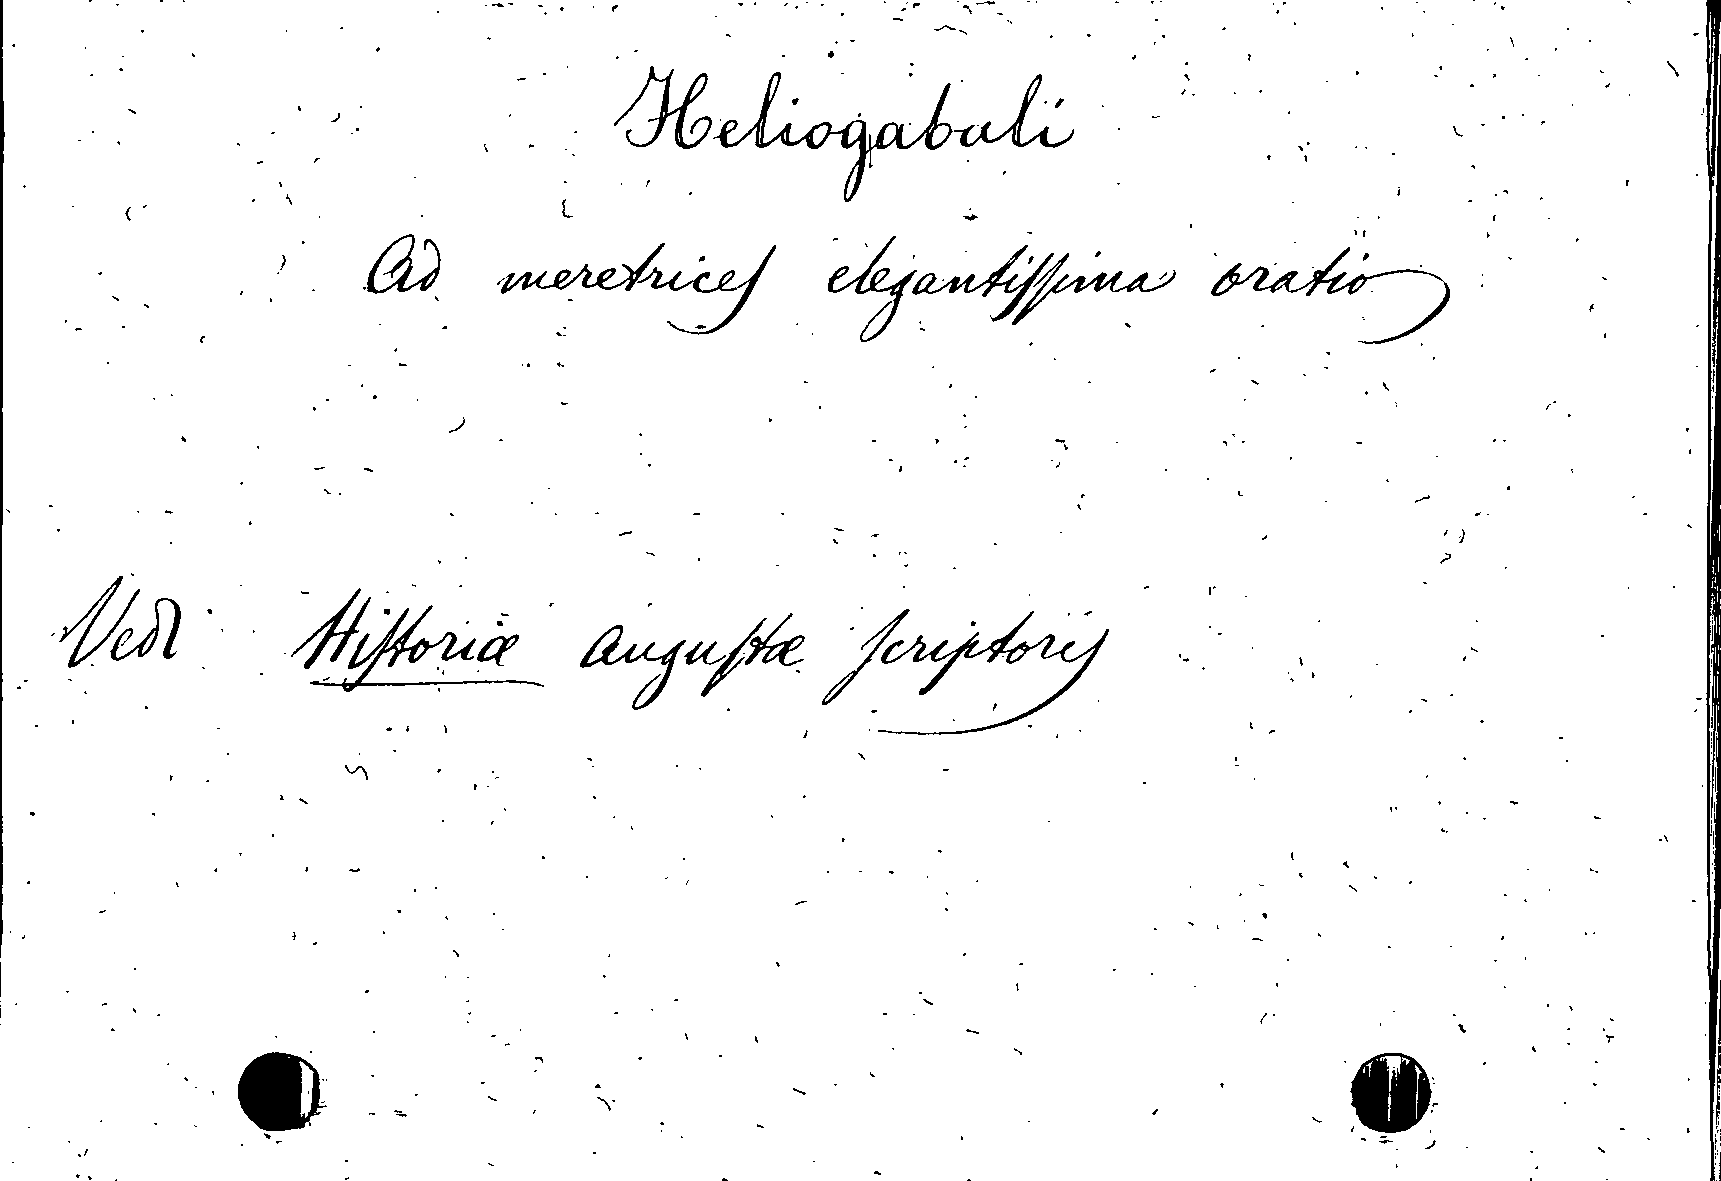 Heliogabali
Ad meretrices elegantissima oratio
Vedi Historiæ augustæ scriptores